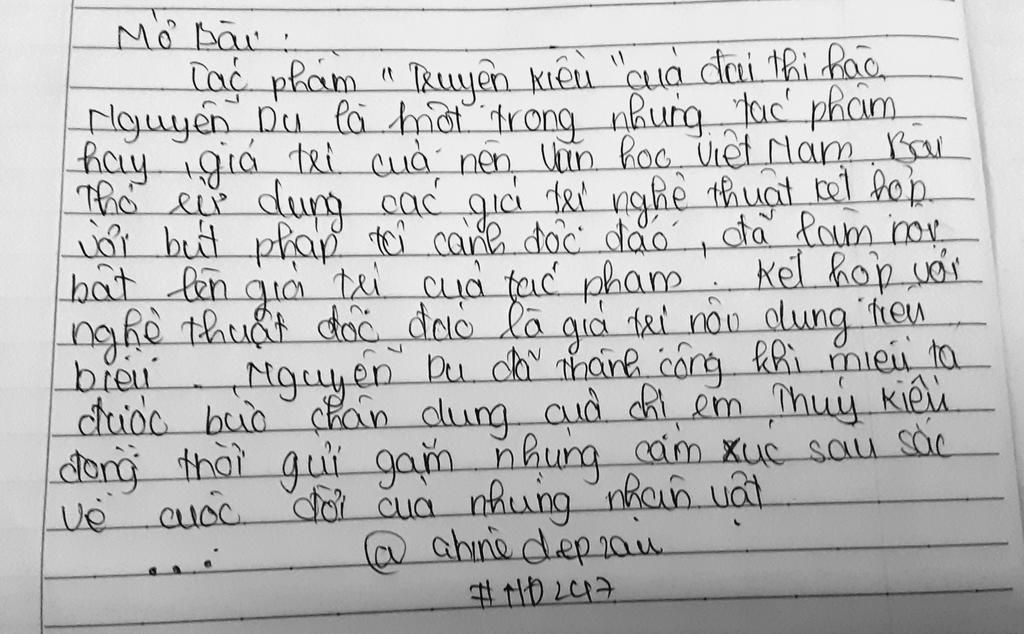 Mở Bài:
Tác phẩm "Truyện Kiều" của đại thi hào
Nguyễn Du là một trong những tác phẩm
hay, giá trị của nền văn học Việt Nam. Bài
thơ sử dụng các giá trị nghệ thuật kết hợp
với bút pháp tả cảnh độc đáo, đã làm nổi
bật lên giá trị của tác phẩm. Kết hợp với
nghệ thuật độc đáo là giá trị nội dung tiêu
biểu. Nguyễn Du đã thành công khi miêu tả
được bức chân dung của chị em Thuý Kiều
đồng thời gửi gắm những cảm xúc sâu sắc
về cuộc đời của những nhân vật
...